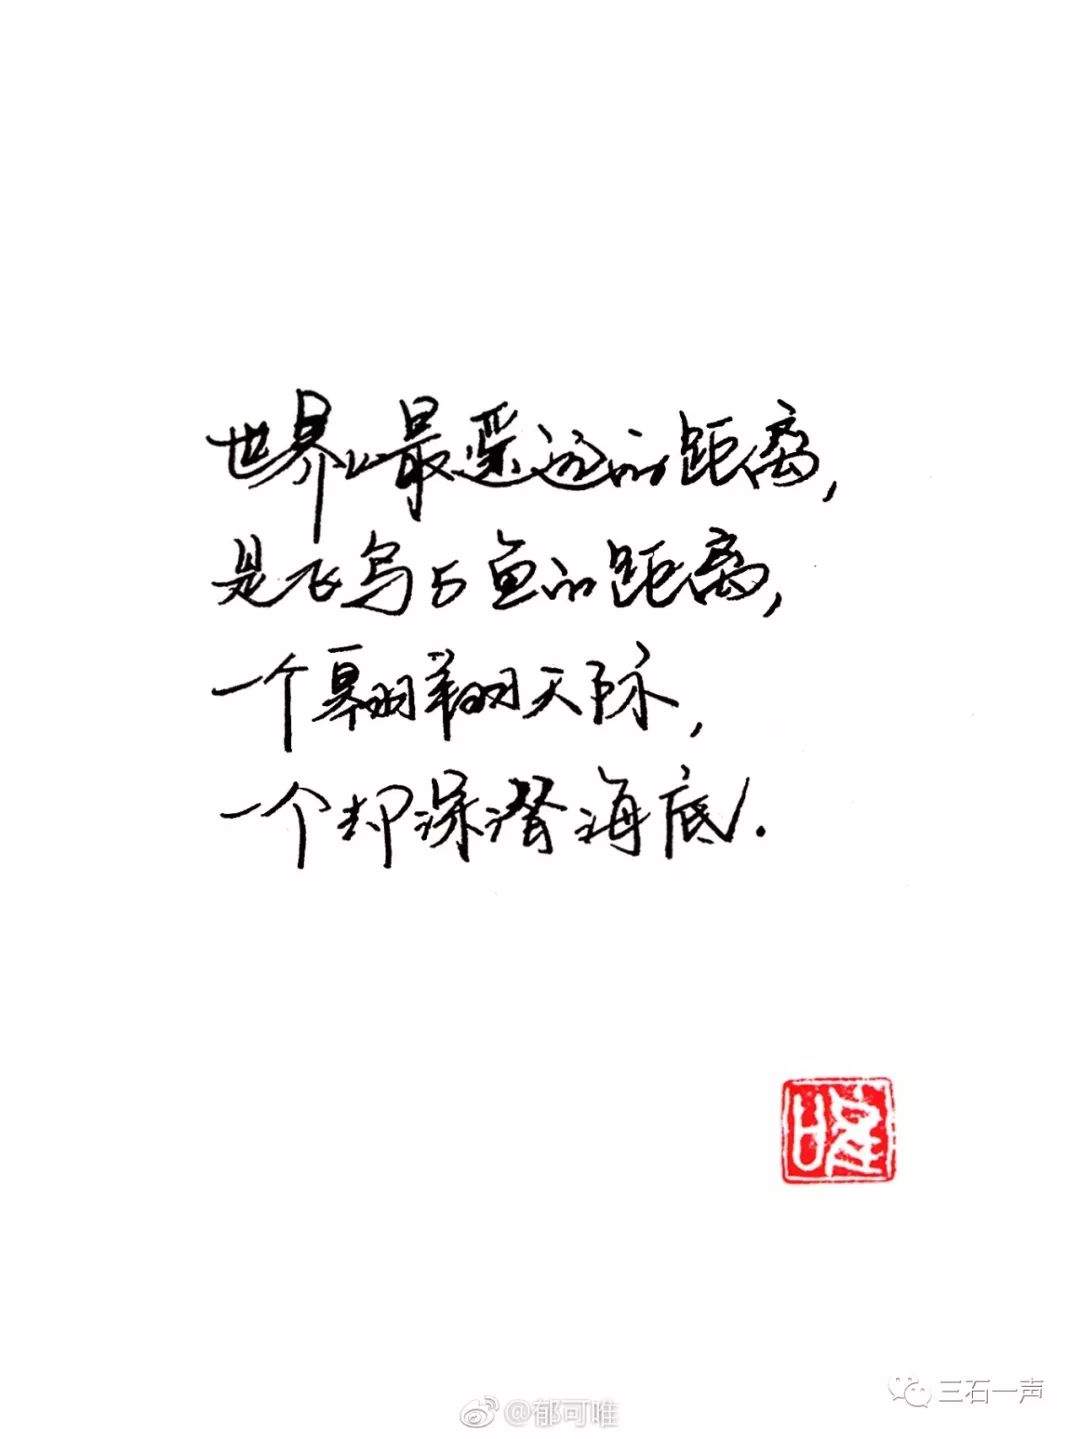 世界上最遥远的距离,
是飞鸟与鱼的距离,
一个翱翔天际,
一个却深潜海底.
唯
三石一声
@郁可唯